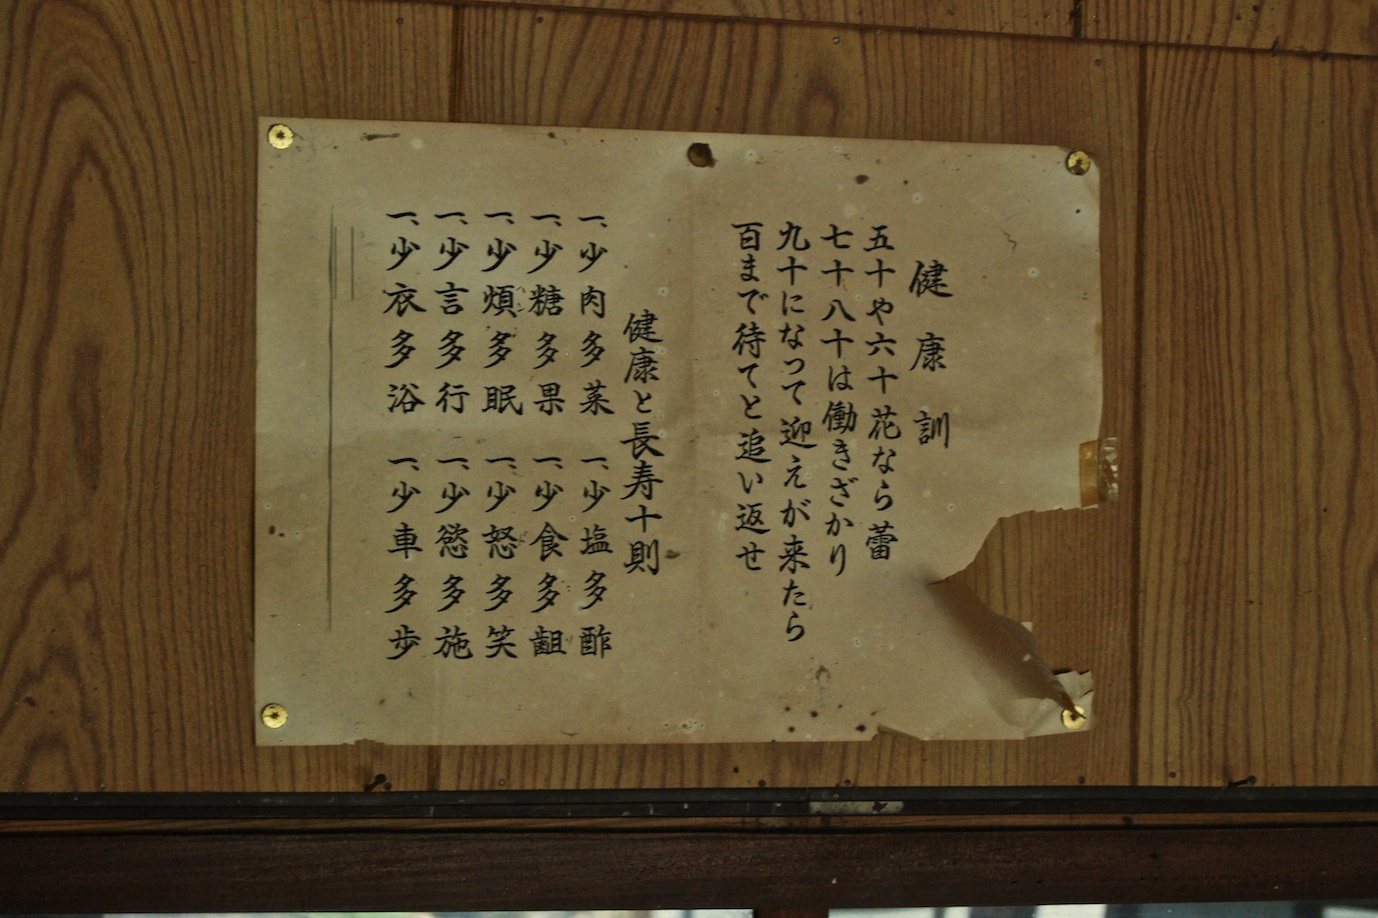 健康訓
五十や六十花なら蕾
七十八十は働きざかり
九十になって迎えが来たら
百まで待てと追い返せ
健康と長寿十則
一、少肉多菜 一、少塩多酢
一、少糖多果 一、少食多齟
一、少煩多眠 一、少怒多笑
一、少言多行 一、少慾多施
一、少衣多浴 一、少車多歩